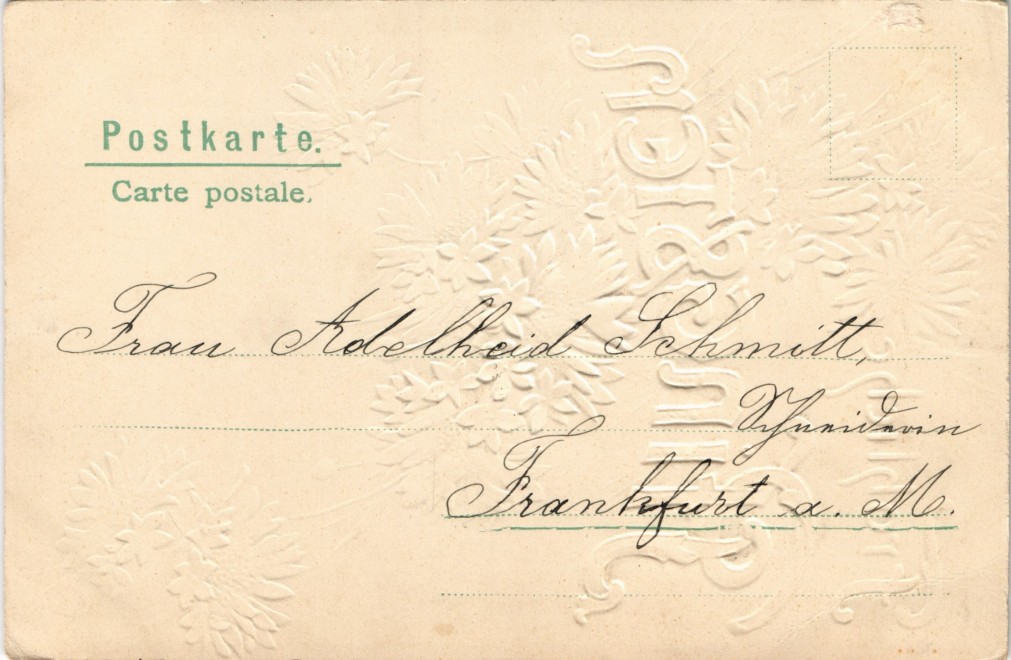 Postkarte.
Carte postale.
Frau Adelheid Schmitt,
Schneiderin
Frankfurt a. M.